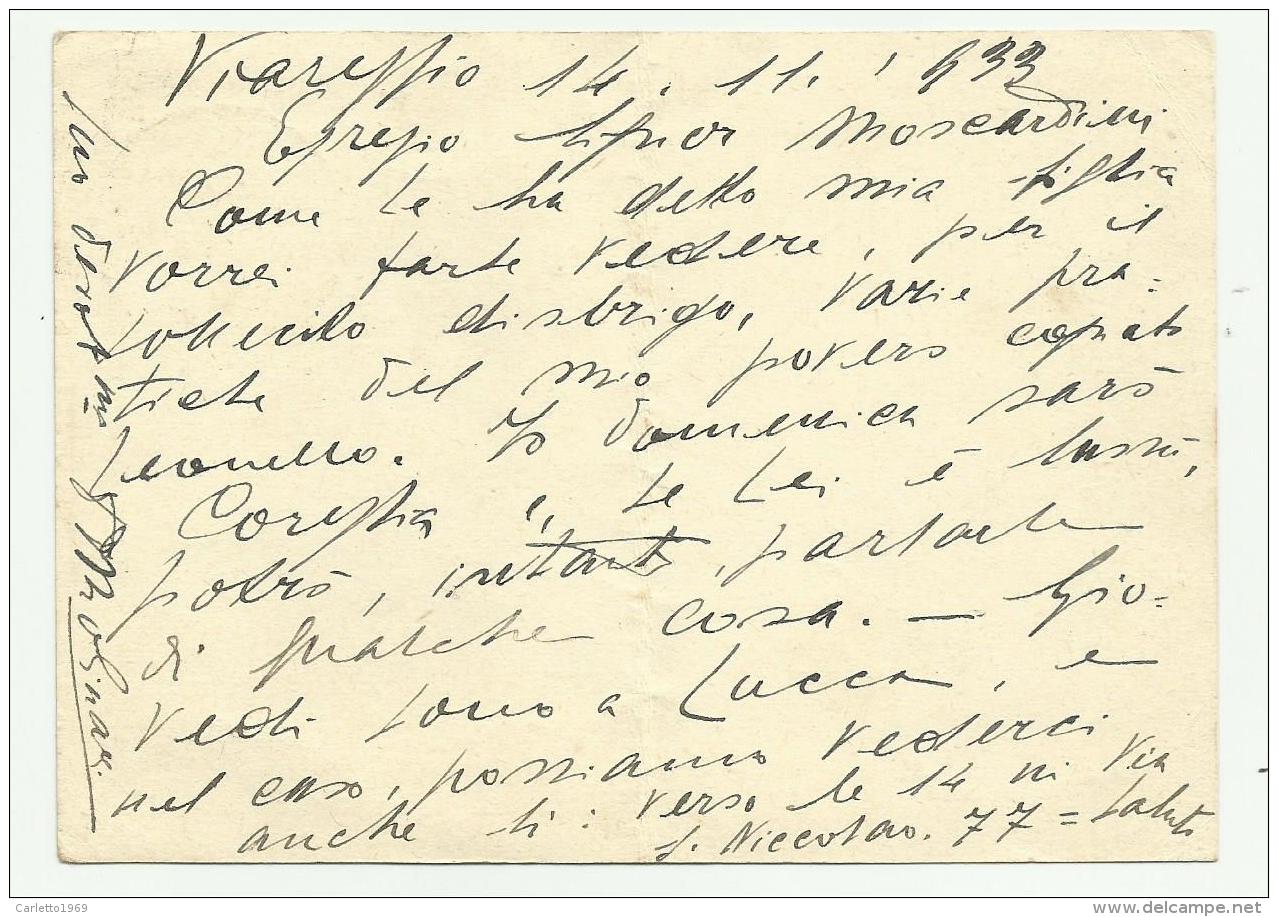 Viareggio 14.11.'933
Egregio Signor Moscardini
Come le ha detto mia figlia
vorrei farle vedere, per il
sollecito disbrigo, varie pra=
tiche del mio povero cognato
Leonello. Io domenica sarò
Coreglia e, se Lei è lassù,
potrò, intanto, parlarle
di qualche cosa. — Gio=
vedì sono a Lucca, e
nel caso, possiamo vederci
anche lì: verso le 14 in Via
S. Niccolao. 77 = Saluti
suo devotmo
Molinari
Carletto1969
delcampe.net